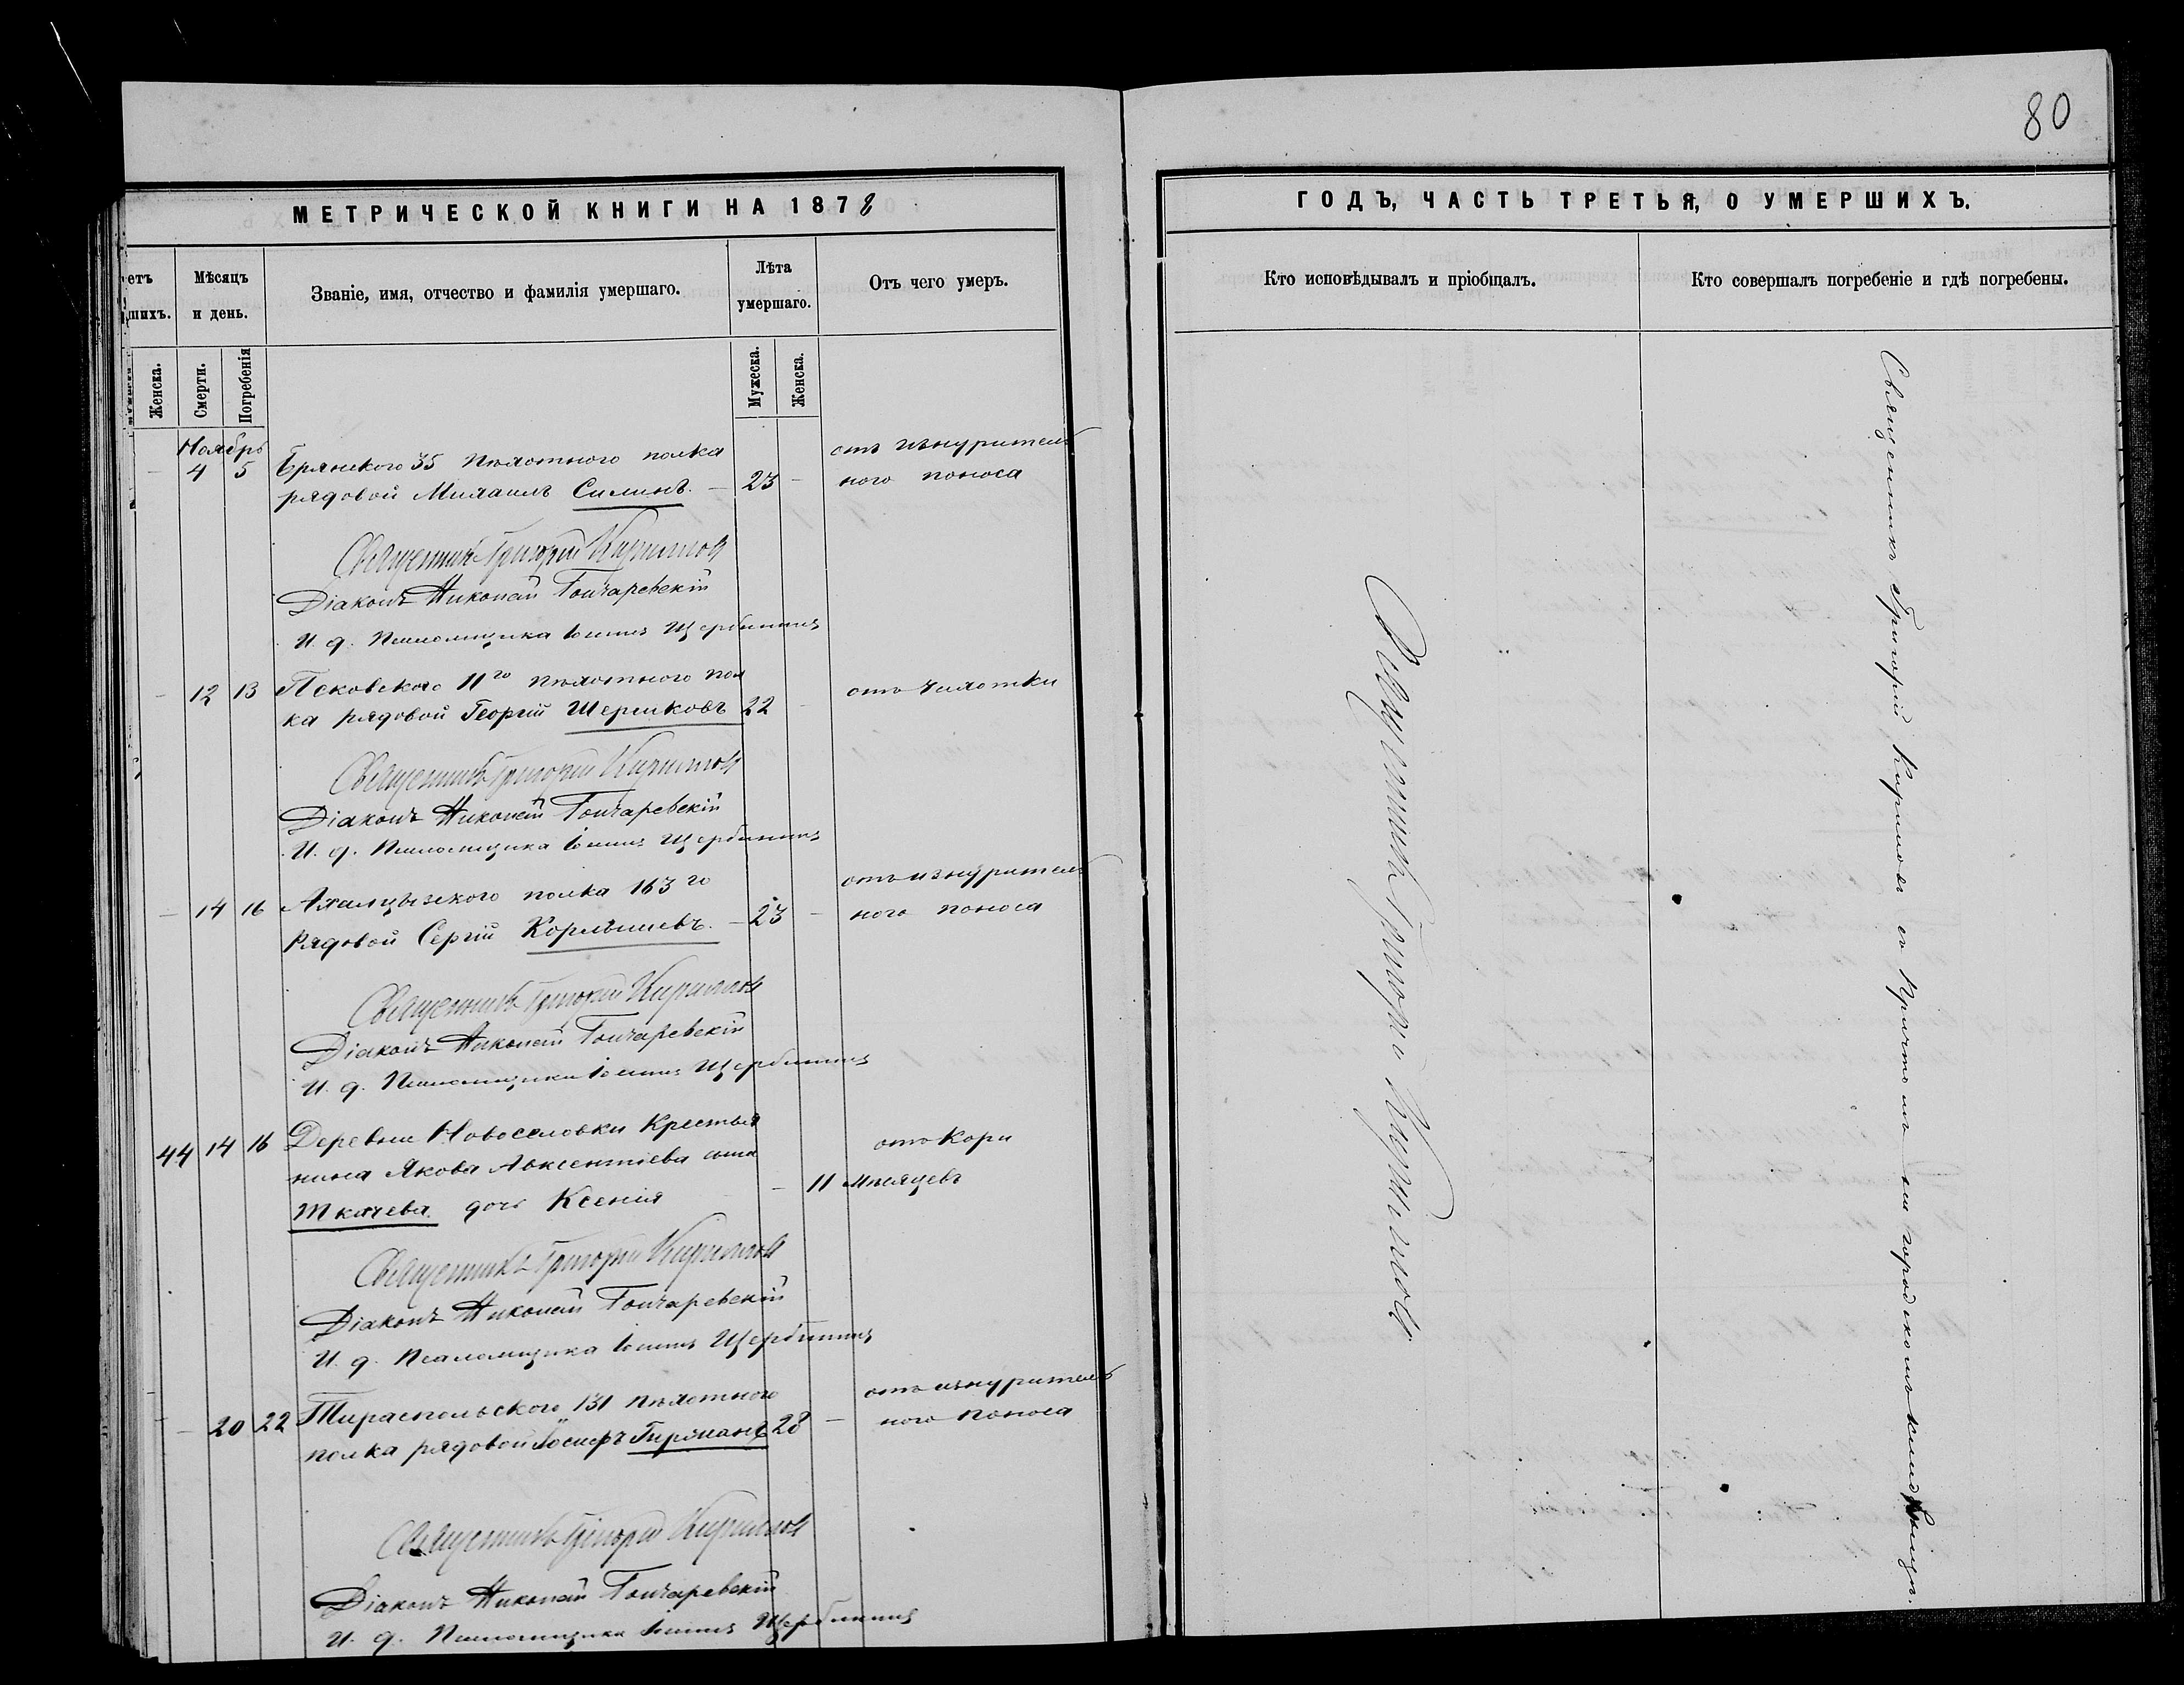 80
МЕТРИЧЕСКОЙ КНИГИ НА 1878
етъ
шихъ.
Мѣсяцъ
и день.
Званіе, имя, отчество и фамилія умершаго.
Лѣта
умершаго.
Отъ чего умеръ.
Женска.
Смерти.
Погребенія
Мужеска.
Женска.
Ноябрь
4 5 Брянского 35 пѣхотного полка
рядовой Михаилъ Силинъ. — 23 — отъ изнуритель
ного поноса
Священникъ Григорій Кириллов
Діаконъ Николай Гончаревскій
И. д. Псаломщика Іоаннъ Щербининъ
12 13 Псковского 11го пѣхотного пол
ка рядовой Георгій Шерликовъ 22 — отъ чахотки
Священникъ Григорій Кириллов
Діаконъ Николай Гончаревскій
И. д. Псаломщика Іоаннъ Щербининъ
14 16 Ахалцызского полка 163го
Рядовой Сергій Корявишевъ. — 23 — отъ изнуритель
ного поноса
Священникъ Григорій Кириллов
Діаконъ Николай Гончаревскій
И. д. Псаломщика Іоаннъ Щербининъ
44 14 16 Деревни Новоселовки Крестья
нина Якова Авксентіева сына
Ткачева дочь Ксенія — 11 мѣсяцевъ
отъ Кори
Священникъ Григорій Кириллов
Діаконъ Николай Гончаревскій
И. д. Псаломщика Іоаннъ Щербининъ
20 22 Тираспольского 131 пѣхотного
полка рядовой Іосифъ 28 — отъ изнуритель
ного поноса
Священникъ Григорій Кириллов
Діаконъ Николай Гончаревскій
И. д. Псаломщика Іоаннъ Щербининъ
ГОДЪ, ЧАСТЬ ТРЕТЬЯ, О УМЕРШИХЪ.
Кто исповѣдывалъ и пріобщалъ.
Кто совершалъ погребеніе и гдѣ погребены.
Священникъ Григорій Кириллов
Священникъ Григорій Кириллов съ Причтомъ на городскомъ кладбищѣ.